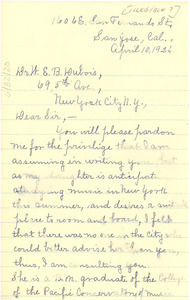 [ILLEGIBLE?]
1606 E. San Fernando St,
San Jose, Cal.,
April 10, 192
Dr. W. E. B. DuBois,
69 5th Ave.,
New York City N.Y.,
Dear Sir,—
You will please pardon
me for the privilige that I am
assuming in writing you, but
as my daughter is anticipat
studying music in New York
this summer, and desires a suit
place to room and board, I felt
that there was no one in the city who
could better advise her than you,
thus, I am consulting you.
She is a graduate of the College
of the Pacific Conservatory of music